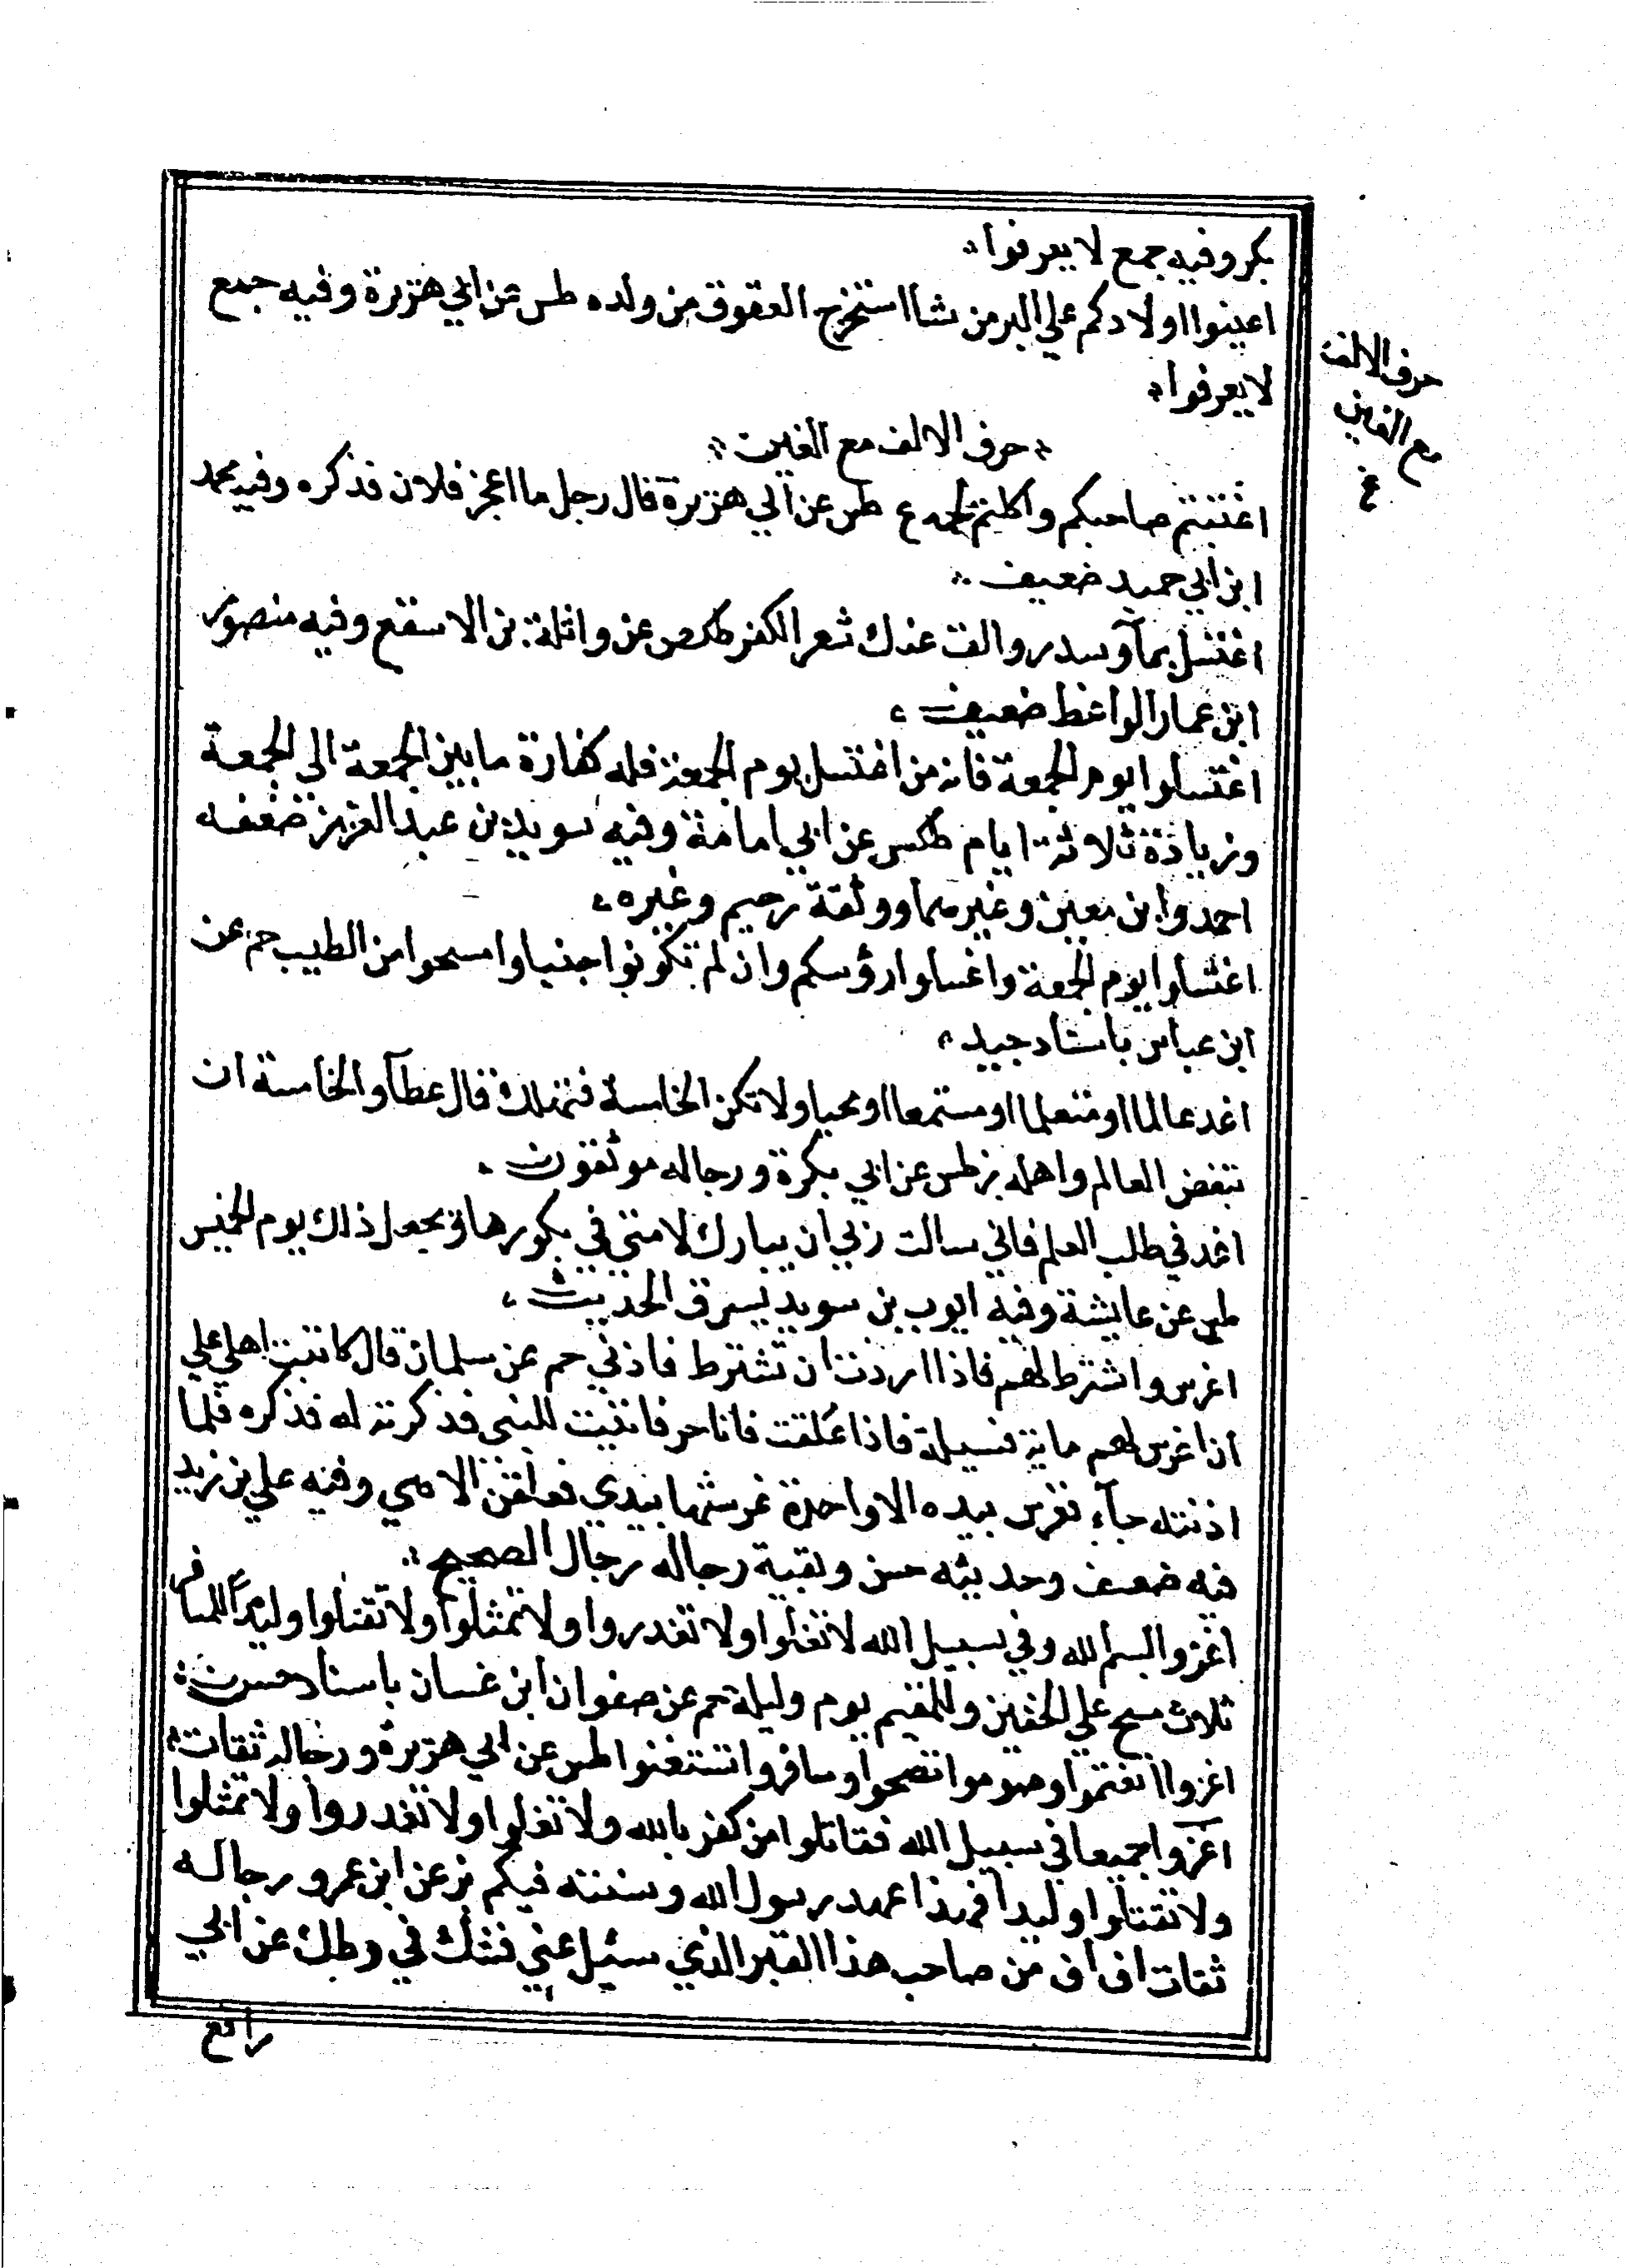 بكر وفيه جمع لا يعرفوا
اعينوا اولادكم علي البر من شا استخرج العقوق من ولده طس عن ابي هريرة وفيه جمع
لا يعرفوا
حرف الالف مع الغين
اغتبتم صاحبكم واكلتم لحمه ع طس عن ابي هريرة قال رجل ما اعجز فلان فذكره وفيه محمد
ابن ابي حميد ضعيف
اغتسل بمآ وسدر والق عنك شعر الكفر طكص عن واثلة بن الاسقع وفيه منصور
ابن عمار الواعظ ضعيف
اغتسلوا يوم الجمعة فانه من اغتسل يوم الجمعة فله كفارة ما بين الجمعة الي الجمعة
وزيادة ثلاثة ايام طكس عن ابي امامة وفيه سويد بن عبد العزيز ضعفه
احمد وابن معين وغيرهما ووثقة رحيم وغيره
اغتسلوا يوم الجمعة واغسلوا رؤسكم وان لم تكونوا جنبا وامسحوا من الطيب حم عن
ابن عباس باسناد جيد
اغد عالما او متعلما او مستمعا او محبا ولا تكن الخامسة فتهلك قال عطآ والخامسة ان
تبغض العالم واهله بز طس عن ابي بكرة ورجاله موثقون
اغد في طلب العلم فاني سالت ربي ان يبارك لامتي في بكورها ويجعل ذلك يوم الخميس
طس عن عايشة وفيه ايوب بن سويد يسرق الحديث
اغرس واشترط لهم فاذا اردت ان تشترط فاذني حم عن سلمان قال كاتبت اهلي علي
ان اغرس لهم ماية فسيلة فاذا علقت فانا حر فاتيت النبي فذكرته له فذكره فلما
اذنته جآء نغرس بيده الا واحدة غرستها بيدي فعلقن الا هي وفيه علي بن زيد
فيه ضعف وحديثه حسن وبقية رجاله رجال الصحيح
اغزوا بسم الله وفي سبيل الله لا تغلوا ولا تغدروا ولا تمثلوا ولا تقتلوا وليدا للمسافر
ثلاث مسح علي الخفين وللمقيم يوم وليلة حم عن صفوان ابن غسان باسناد حسن
اغزوا تغتموا وصوموا تصحوا وسافروا تستغنوا طس عن ابي هريرة ورجاله ثقات
اغزوا جميعا في سبيل الله فقاتلوا من كفر بالله ولا تغلوا ولا تغدروا ولا تمثلوا
ولا تقتلوا وليدا فهذا عهد رسول الله وسنته فيكم بز عن ابن عمر ورجاله
ثقات اف اف من صاحب هذا القبر الذي سئل عني فشك في د طك عن ابي
رافع
حرف الالف
مع الغين
غ